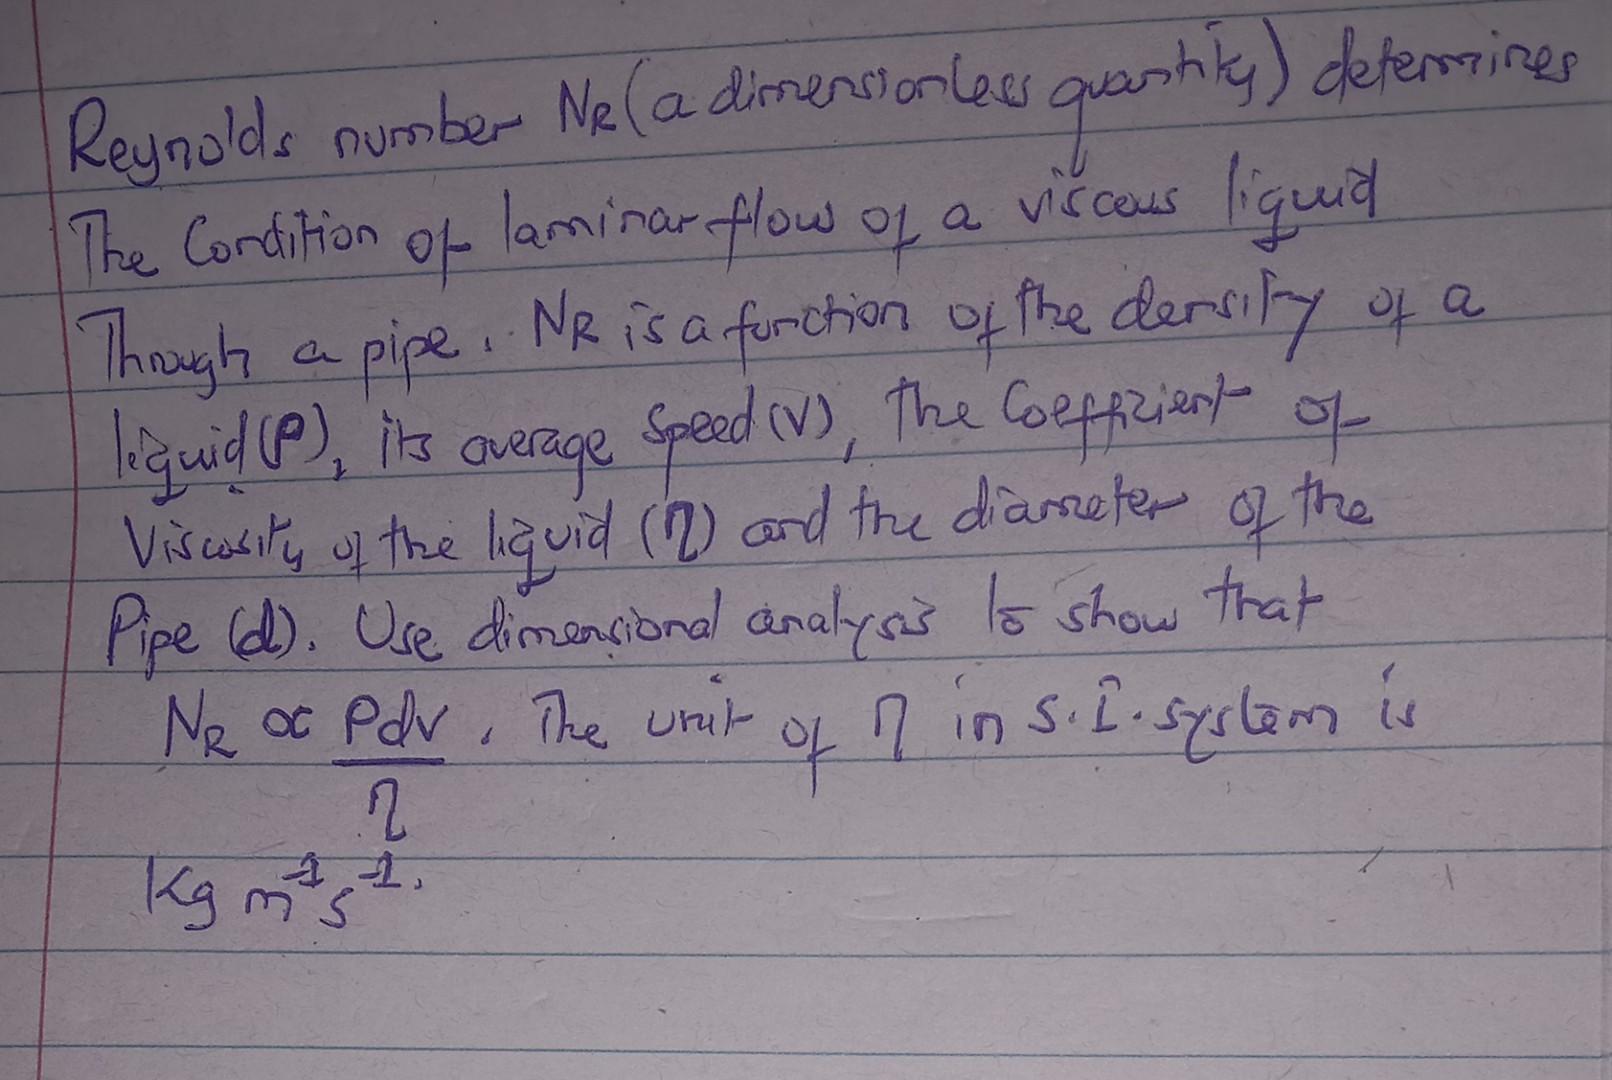 Reynolds number NR (a dimensionless quantity) determines
The Condition of laminar flow of a viscous liquid
Through a pipe. NR is a function of the density of a
liquid (ρ), its average speed (v), The Coefficient of
Viscosity of the liquid (η) and the diameter of the
Pipe (d). Use dimensional analysis to show that
NR ∝ ρdv/η. The unit of η in S.I. system is
Kg m⁻¹s⁻¹.